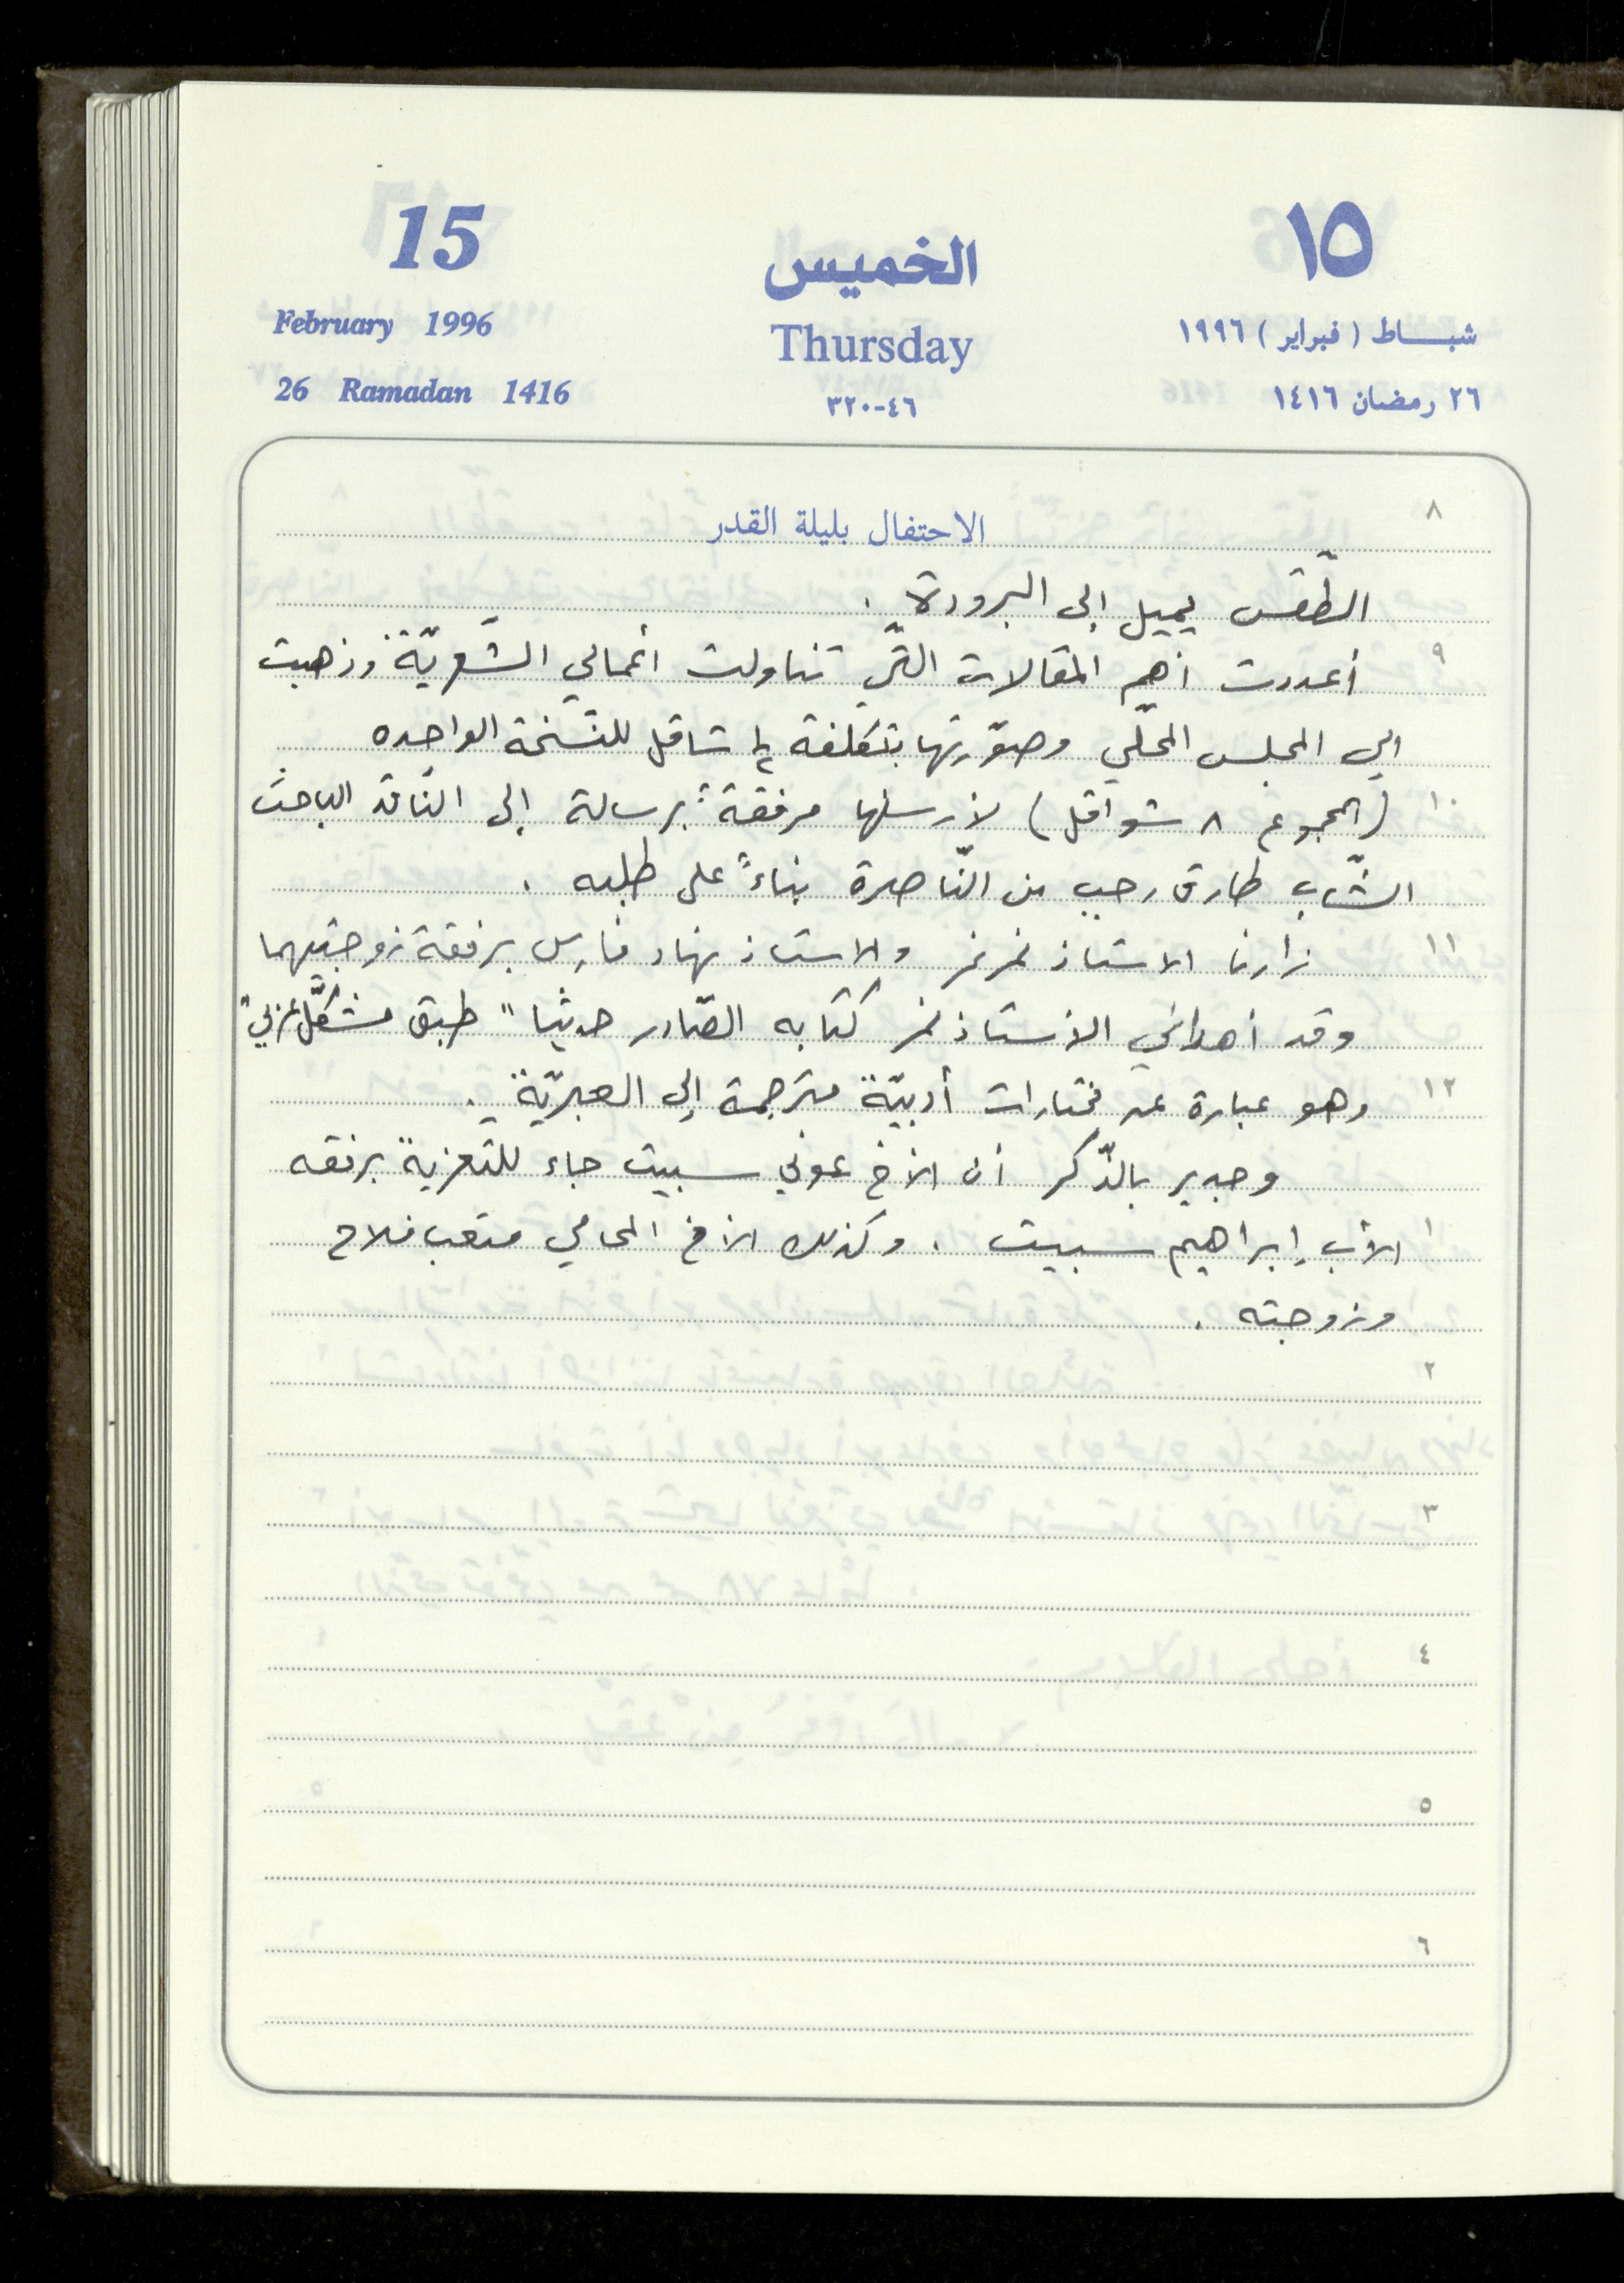 15
الخميس
١٥
February 1996
Thursday
شبـــاط (فبراير) ١٩٩٦
26 Ramadan 1416
٤٦-٣٢٠
٢٦ رمضان ١٤١٦
٨
الاحتفال بليلة القدر
الطّقس يميل إلى البرودة .
٩ أعددت أهم المقالات التّي تناولت أعمالي الشّعريّة وذهبت
الى المجلس المحلّي وصوّرتها بتكلفة ¼ شاقل للنّسخة الواحده
١٠ (المجموع ٨ شواقل) لأرسلها مرفقةً برسالة إلى النّاقد الباحث
الشّاب طارق رجب من النّاصرة بناءً على طلبه .
١١ زارنا الاستاذ نمر نمر والاستاذ نهاد فارس برفقة زوجتيهما
وقد أهداني الأستاذ نمر كتابه الصّادر حديثا " طبق مشكّل عربي"
١٢ وهو عبارة عن مختارات أدبيّة مترجمة إلى العبريّة .
وجدير بالذّكر أن الأخ عوني سبيت جاء للتعزية برفقه
١ الأب إبراهيم سبيت . وكذلك الأخ المحامي متعب فلاح
وزوجته .
٢
٣
٤
٥
٦